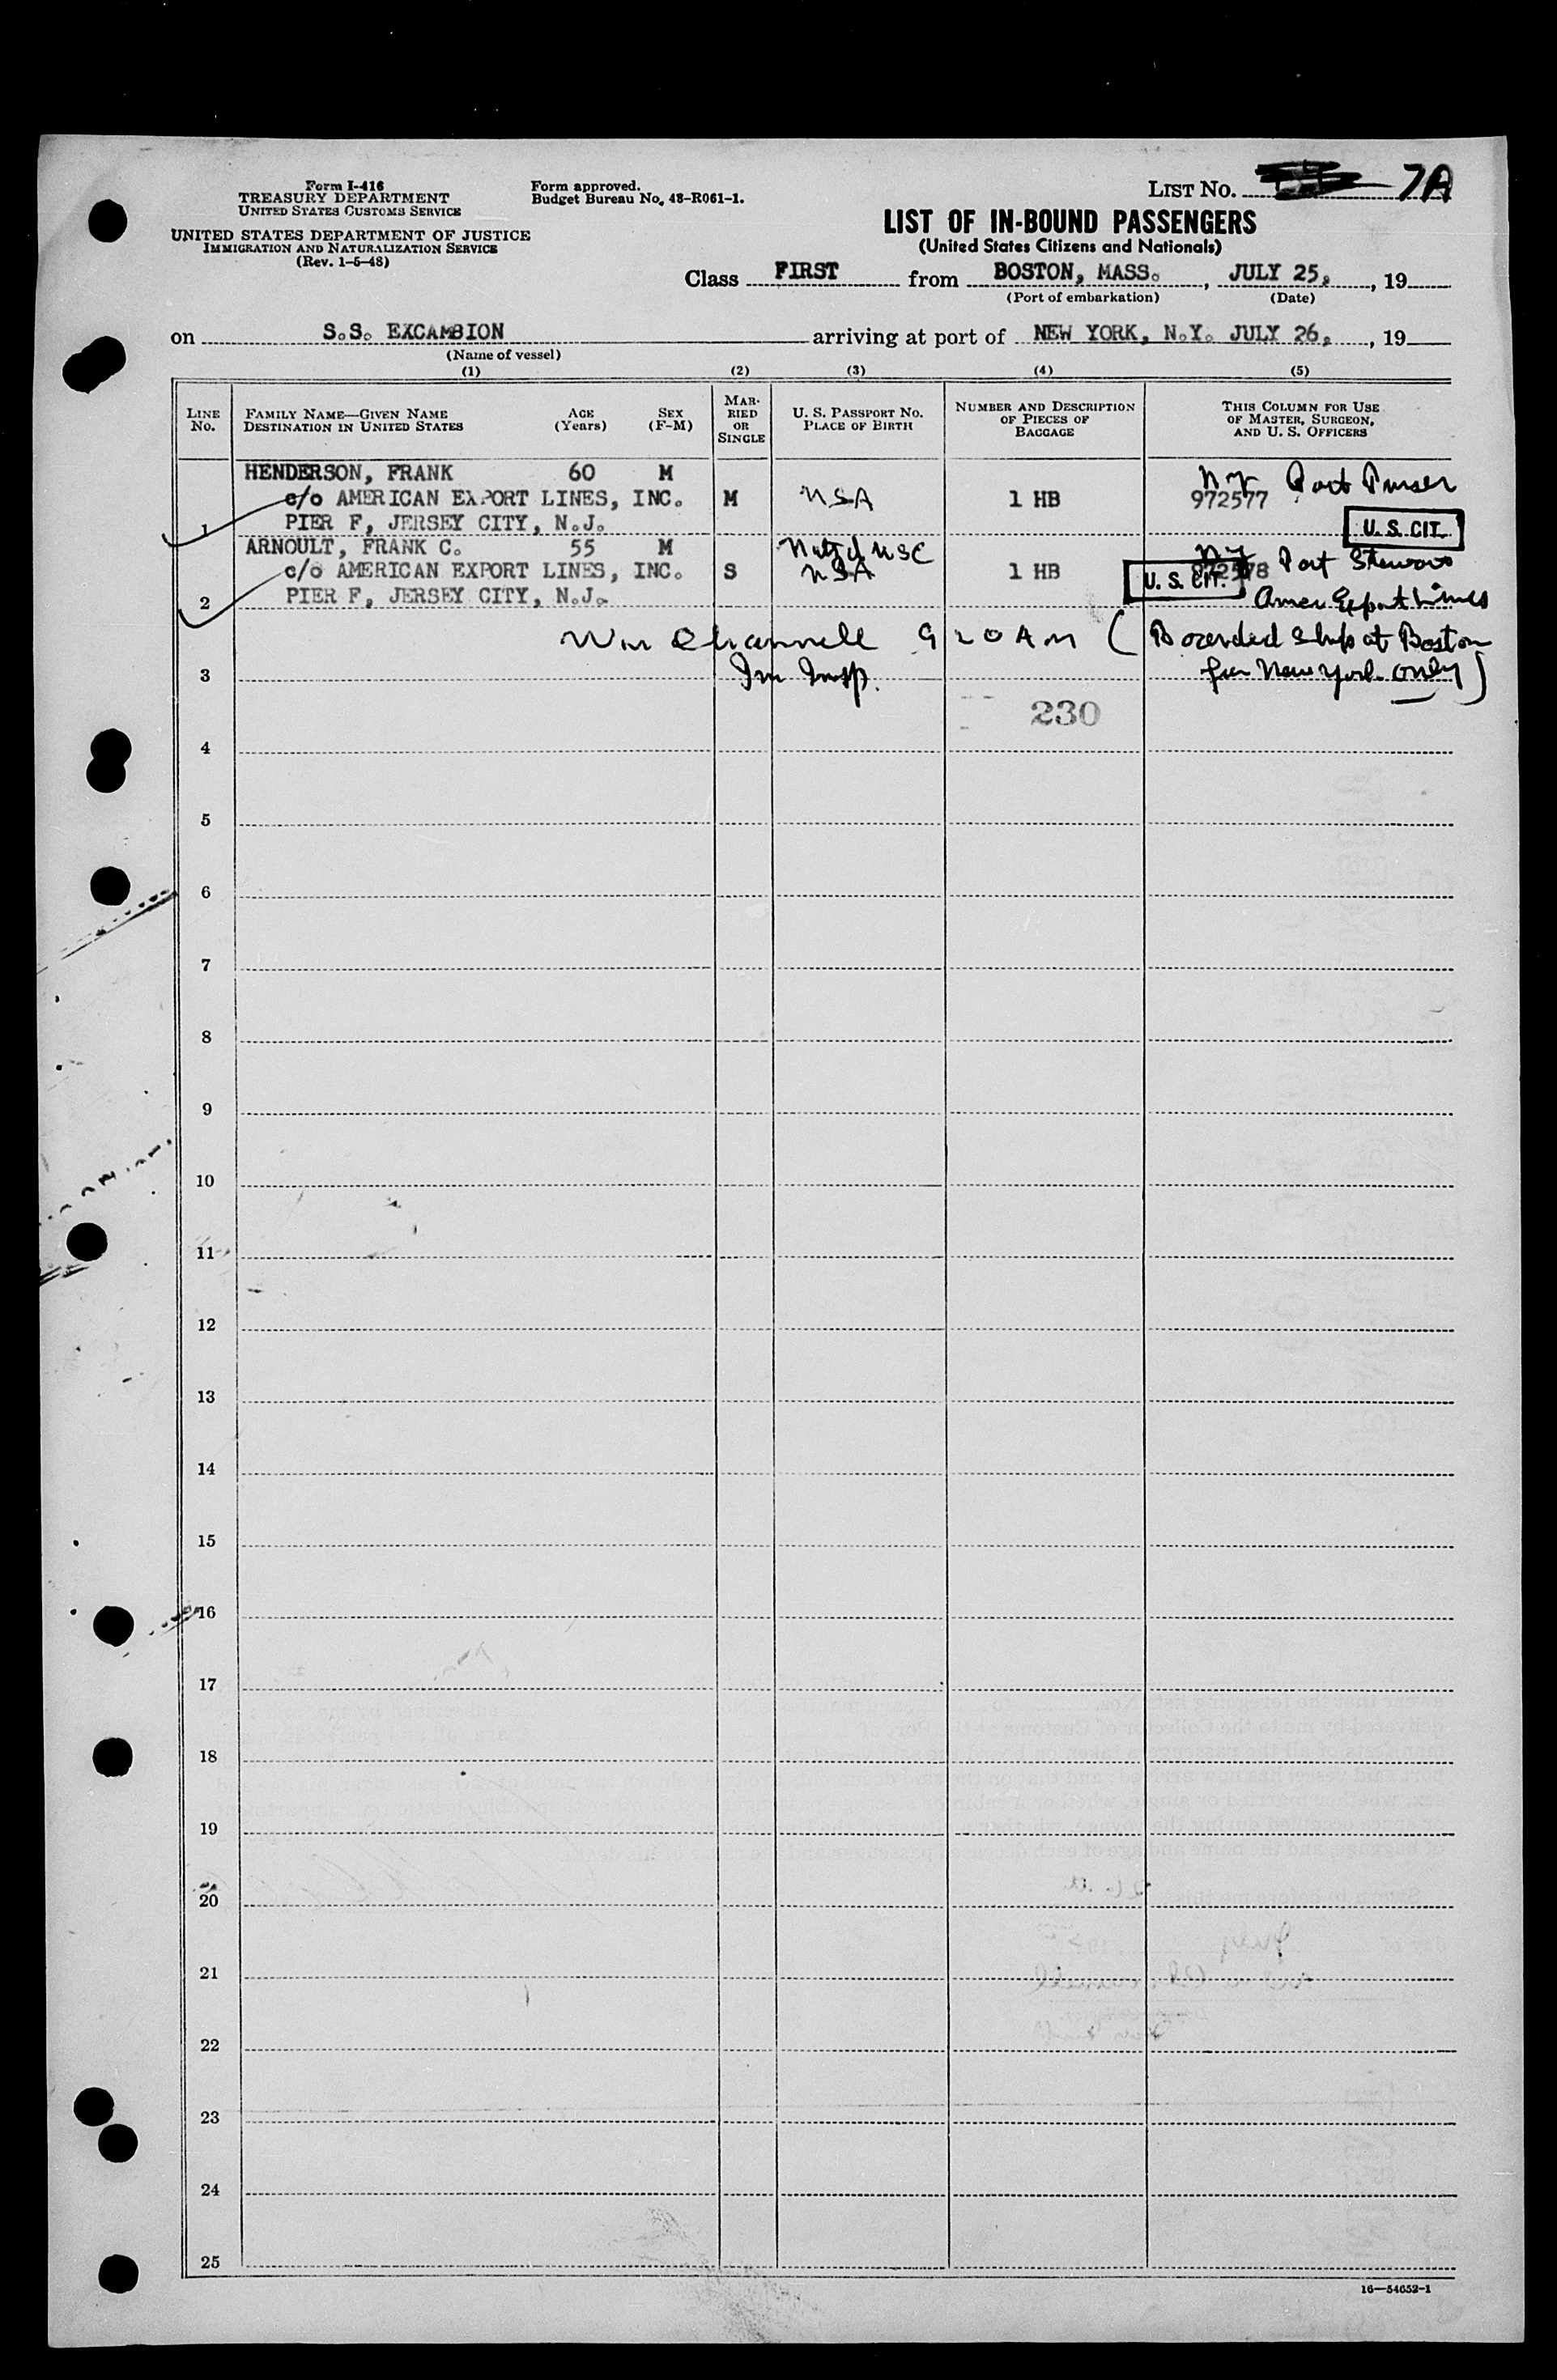 Form I-416
TREASURY DEPARTMENT
UNITED STATES CUSTOMS SERVICE
UNITED STATES DEPARTMENT OF JUSTICE
IMMIGRATION AND NATURALIZATION SERVICE
(Rev. 1-5-48)
Form approved.
Budget Bureau No. 48-R061-1.
LIST NO. 7A
LIST OF IN-BOUND PASSENGERS
(United States Citizens and Nationals)
Class FIRST from BOSTON, MASS., JULY 25, , 19
(Port of embarkation) (Date)
on S.S. EXCAMBION arriving at port of NEW YORK, N.Y. JULY 26, , 19
(Name of vessel)
(1) (2) (3) (4) (5)
LINE NO.
FAMILY NAME—GIVEN NAME
DESTINATION IN UNITED STATES
AGE (Years)
SEX (F-M)
MARRIED OR SINGLE
U. S. PASSPORT NO.
PLACE OF BIRTH
NUMBER AND DESCRIPTION
OF PIECES OF
BAGGAGE
THIS COLUMN FOR USE
OF MASTER, SURGEON,
AND U. S. OFFICERS
HENDERSON, FRANK 60 M N.Y. Port Purser
c/o AMERICAN EXPORT LINES, INC. M USA 1 HB 972577
1 PIER F, JERSEY CITY, N.J. U. S. CIT.
ARNOULT, FRANK C. 55 M Natzd USC N.Y. Port Steward
c/o AMERICAN EXPORT LINES, INC. S USA 1 HB 972578 U. S. CIT.
2 PIER F, JERSEY CITY, N.J. Amer Export Lines
Wm 9 20 AM (Boarded ship at Boston
3 Im Insp. for New York only)
230
4
5
6
7
8
9
10
11
12
13
14
15
16
17
18
19
20
21
22
23
24
25
16—54652-1